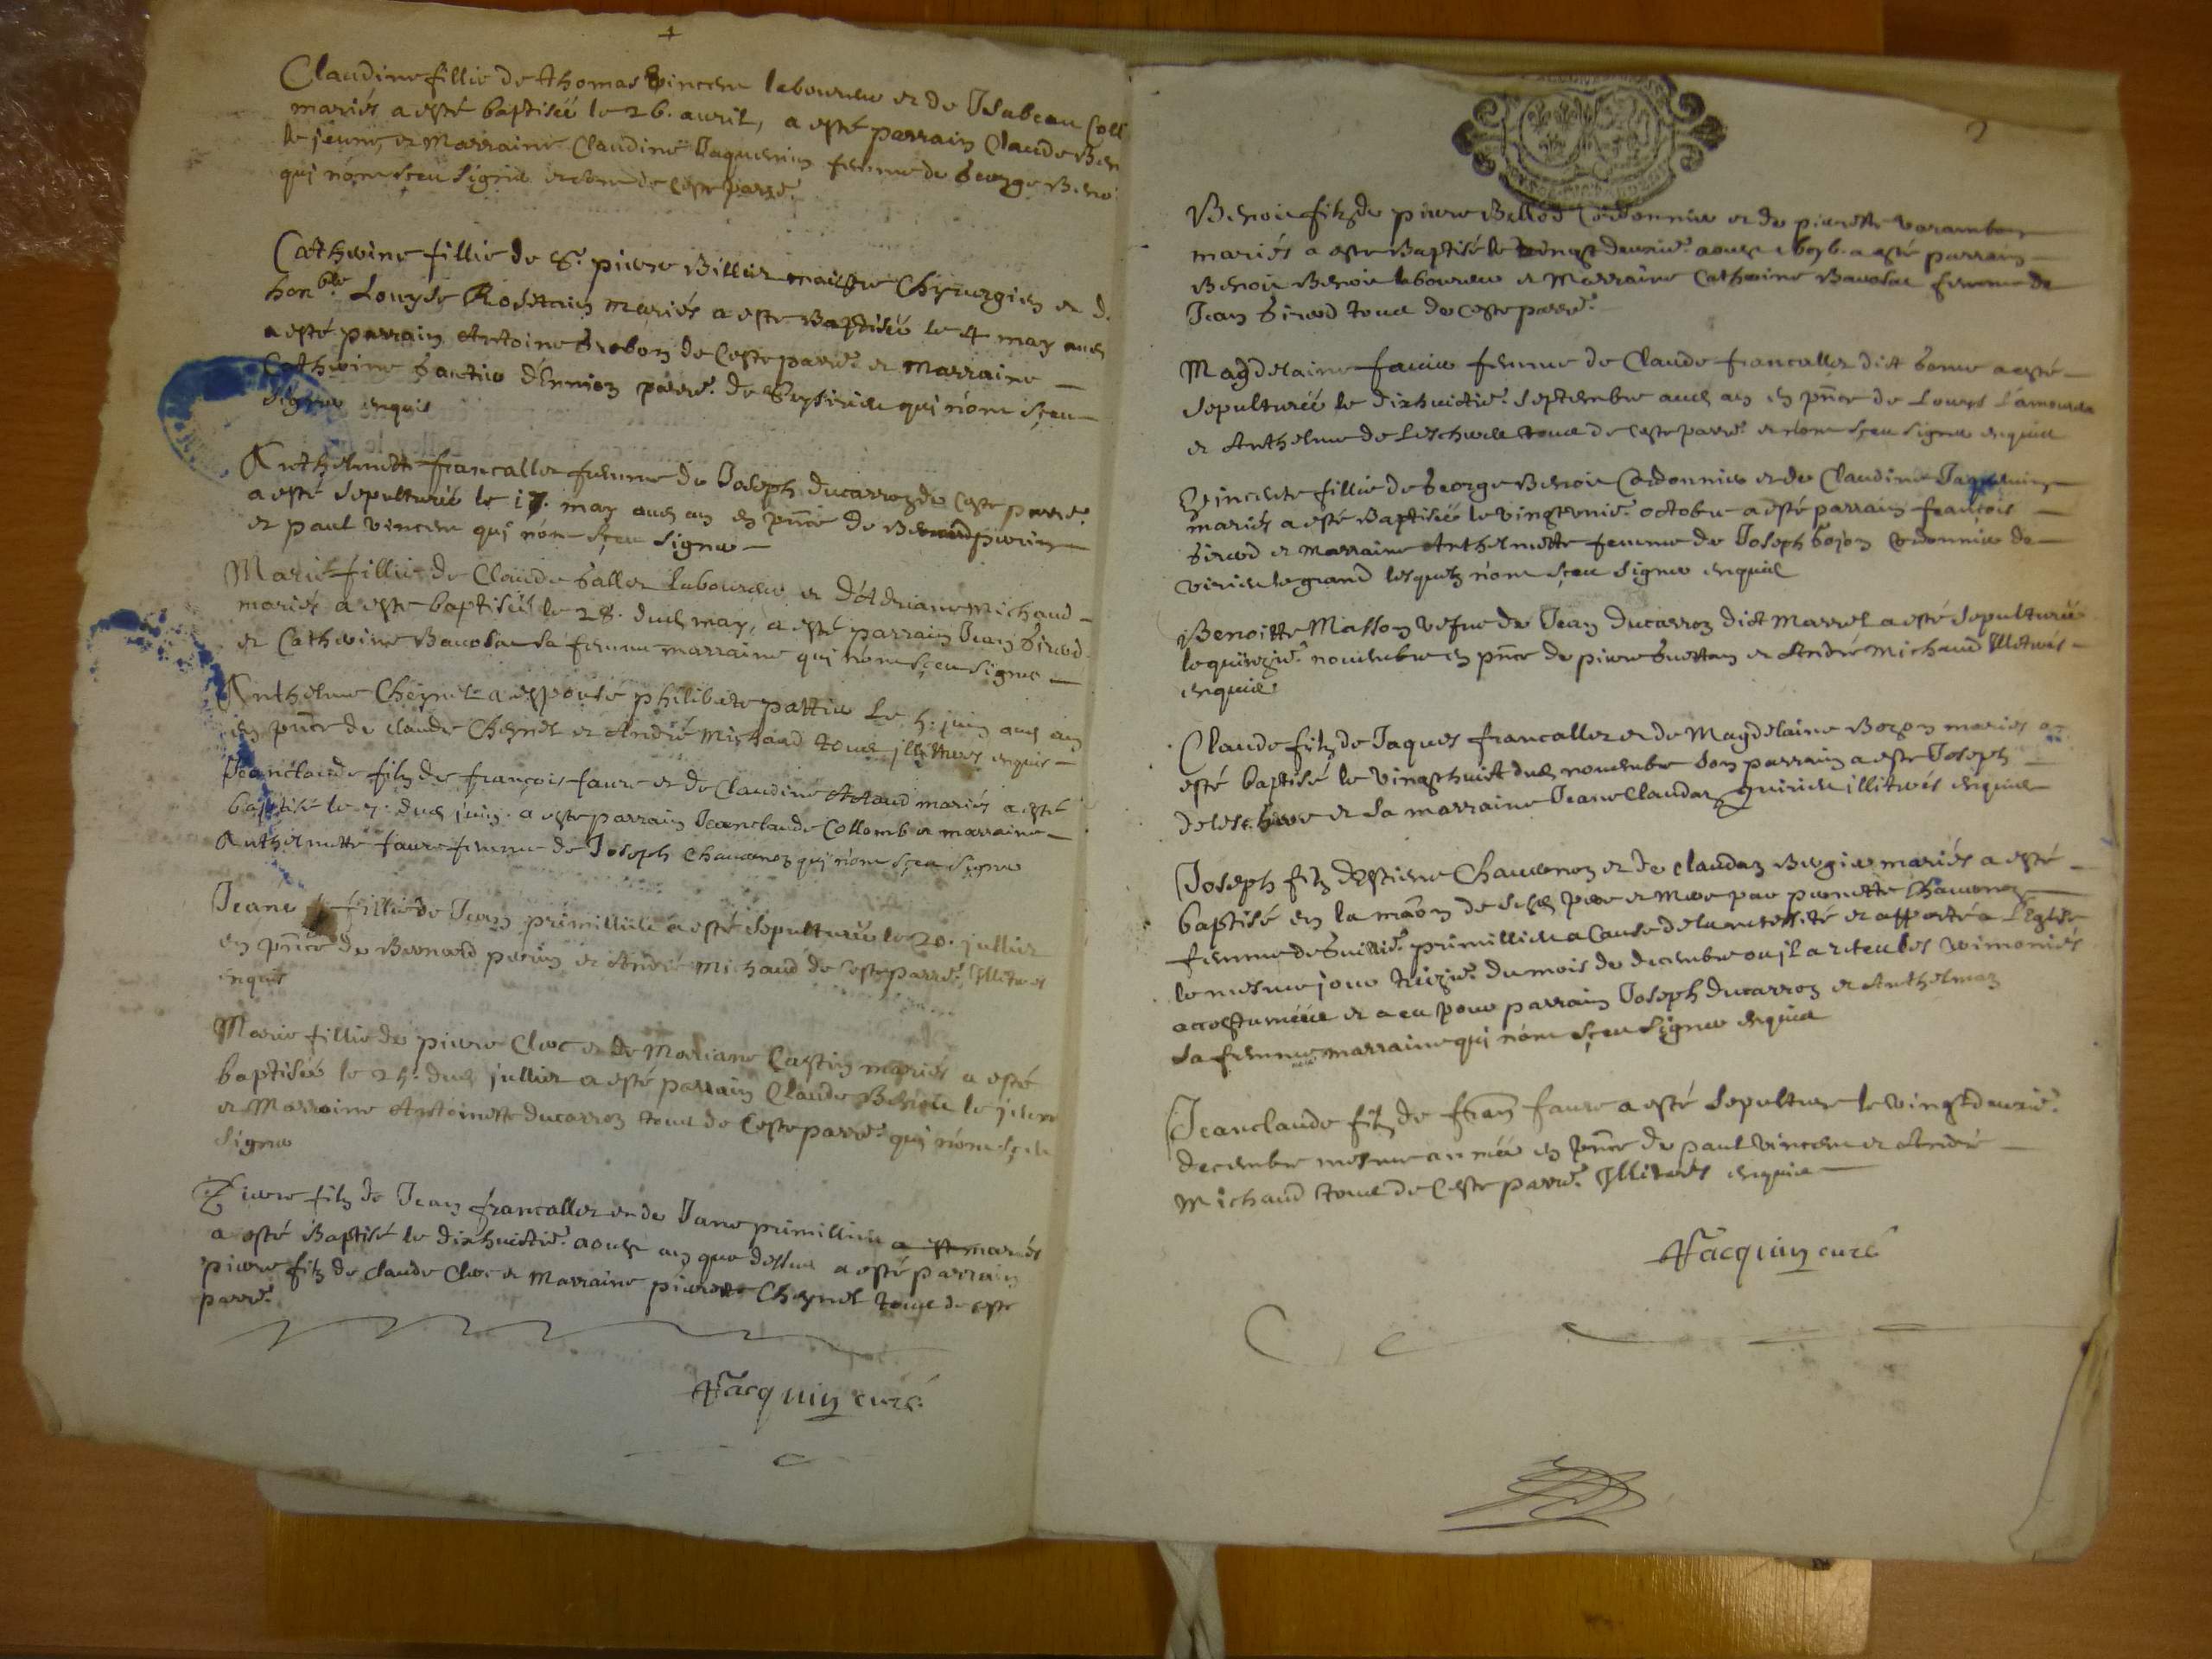 Claudine fillie de thomas Vincent laboureur et de Isabeau Coll
mariés a esté baptisée le 26. avril, a esté parrain Claude Ben
le jeune, et Marraine Claudine Jaquenin femme de George Beno
qui n'ont sceu signer et sont de ceste parre.
Catherine fillie de Sr. pierre Billiet maistre Chyrurgien et d.
honble Louyse Rosstain mariés a esté Baptisée le 4 may aud
a esté parrain Antoine de ceste parre. et Marraine
Catherine d'Ennion parre. de qui n'ont sceu
signer enquis
Anthelmette francallet femme de Joseph ducarroz de ceste parre.
a esté sepulturée le 17. may aud an en pnce de Bernard perrin
et paul vincent qui n'ont sceu signer
Marie fillie de Claude Gallet laboureur et d'Adriane Michaud
mariés a esté baptisée le 28. dud may, a esté parrain Jean Girod
et Catherine sa femme marraine qui n'ont sceu signer
Anthelme Cheynel a espousé philiberte pattier le 5. juin aud an
en pnce de claude Cheynel et André Michaud tous illiteres enquis
Jeanclaude filz de françois faure et de Claudine mariés a esté
baptisé le 7. dud juin. a esté parrain Jeanclaude Collomb et marraine
Anthelmette faure femme de Joseph Chavanoz qui n'ont sceu signer
Jeane fillie de Jean primillieu a esté sepulturée le 20. jullier
en pnce de Bernard perrin et André Michaud de ceste parre. Illiteres
enquis
Marie fillie de pierre Cloc et de Mariane Castin mariés a esté
baptisée le 25. dud jullier a esté parrain Claude Benoit le jeune
et Marraine Antoinette ducarroz tous de ceste parre. qui n'ont sceu
signer
Pierre filz de Jean francallet et de Jane primillieu a est mariés
a esté Baptisé le dixhuictie. aoust an que dessus a esté parrain
pierre filz de claude Cloc et Marraine pierrette Cheynel tous de ceste
parre.
Jacquin curé
2
Benoit filz de pierre Bellod Cordonnier et de pierrette varambon
mariés a esté Baptisé le vingtdeuxie. aoust 1696. a esté parrain
Benoit Benoit laboureur et Marraine Catherine femme de
Jean Girod tous de ceste parre.
Magdelaine faure femme de Claude francallet dict a esté
sepulturée le dixhuictie. septembre aud an en pnce de Louys
et Anthelme de Leschere tous de ceste parre. et n'ont sceu signer enquis
Vincente fillie de George Benoit Cordonnier et de Claudine Jaquenin
mariés a esté Baptisée le vingtunie. octobre a esté parrain françois
Girod et Marraine Anthelmette femme de Joseph Cordonnier de
virieu le grand lesquelz n'ont sceu signer enquis
Benoitte Masson vefve de Jean ducarroz dict Marrel a esté sepulturée
le quinzie. novembre en pnce de pierre et André Michaud Illiterés
enquis
Claude filz de Jaques francallet et de Magdelaine Bozon mariés a
esté baptisé le vingthuict dud novembre son parrain a esté Joseph
de leschere et sa marraine Jeane Claudaz quirieu illiterés enquis
Joseph filz d'Estiene Chavanoz et de claudaz Bergier mariés a esté
baptisé en la maon de sesd pere et Mere par pernette Chavanoz
femme de Guillie. primillieu a Cause de la necessité et apporté a l'Eglise
le mesme jour treizie. du mois de decembre ou il a receu les cerimonies
accostumées et a eu pour parrain Joseph ducarroz et Anthelmaz
sa femme marraine qui n'ont sceu signer enquis
Jeanclaude filz de fran faure a esté sepulture le vingtdeuxie.
decembre mesme année en pnce de paul vincent et André
Michaud tous de ceste parre. Illiterés enquis
Jacquin curé